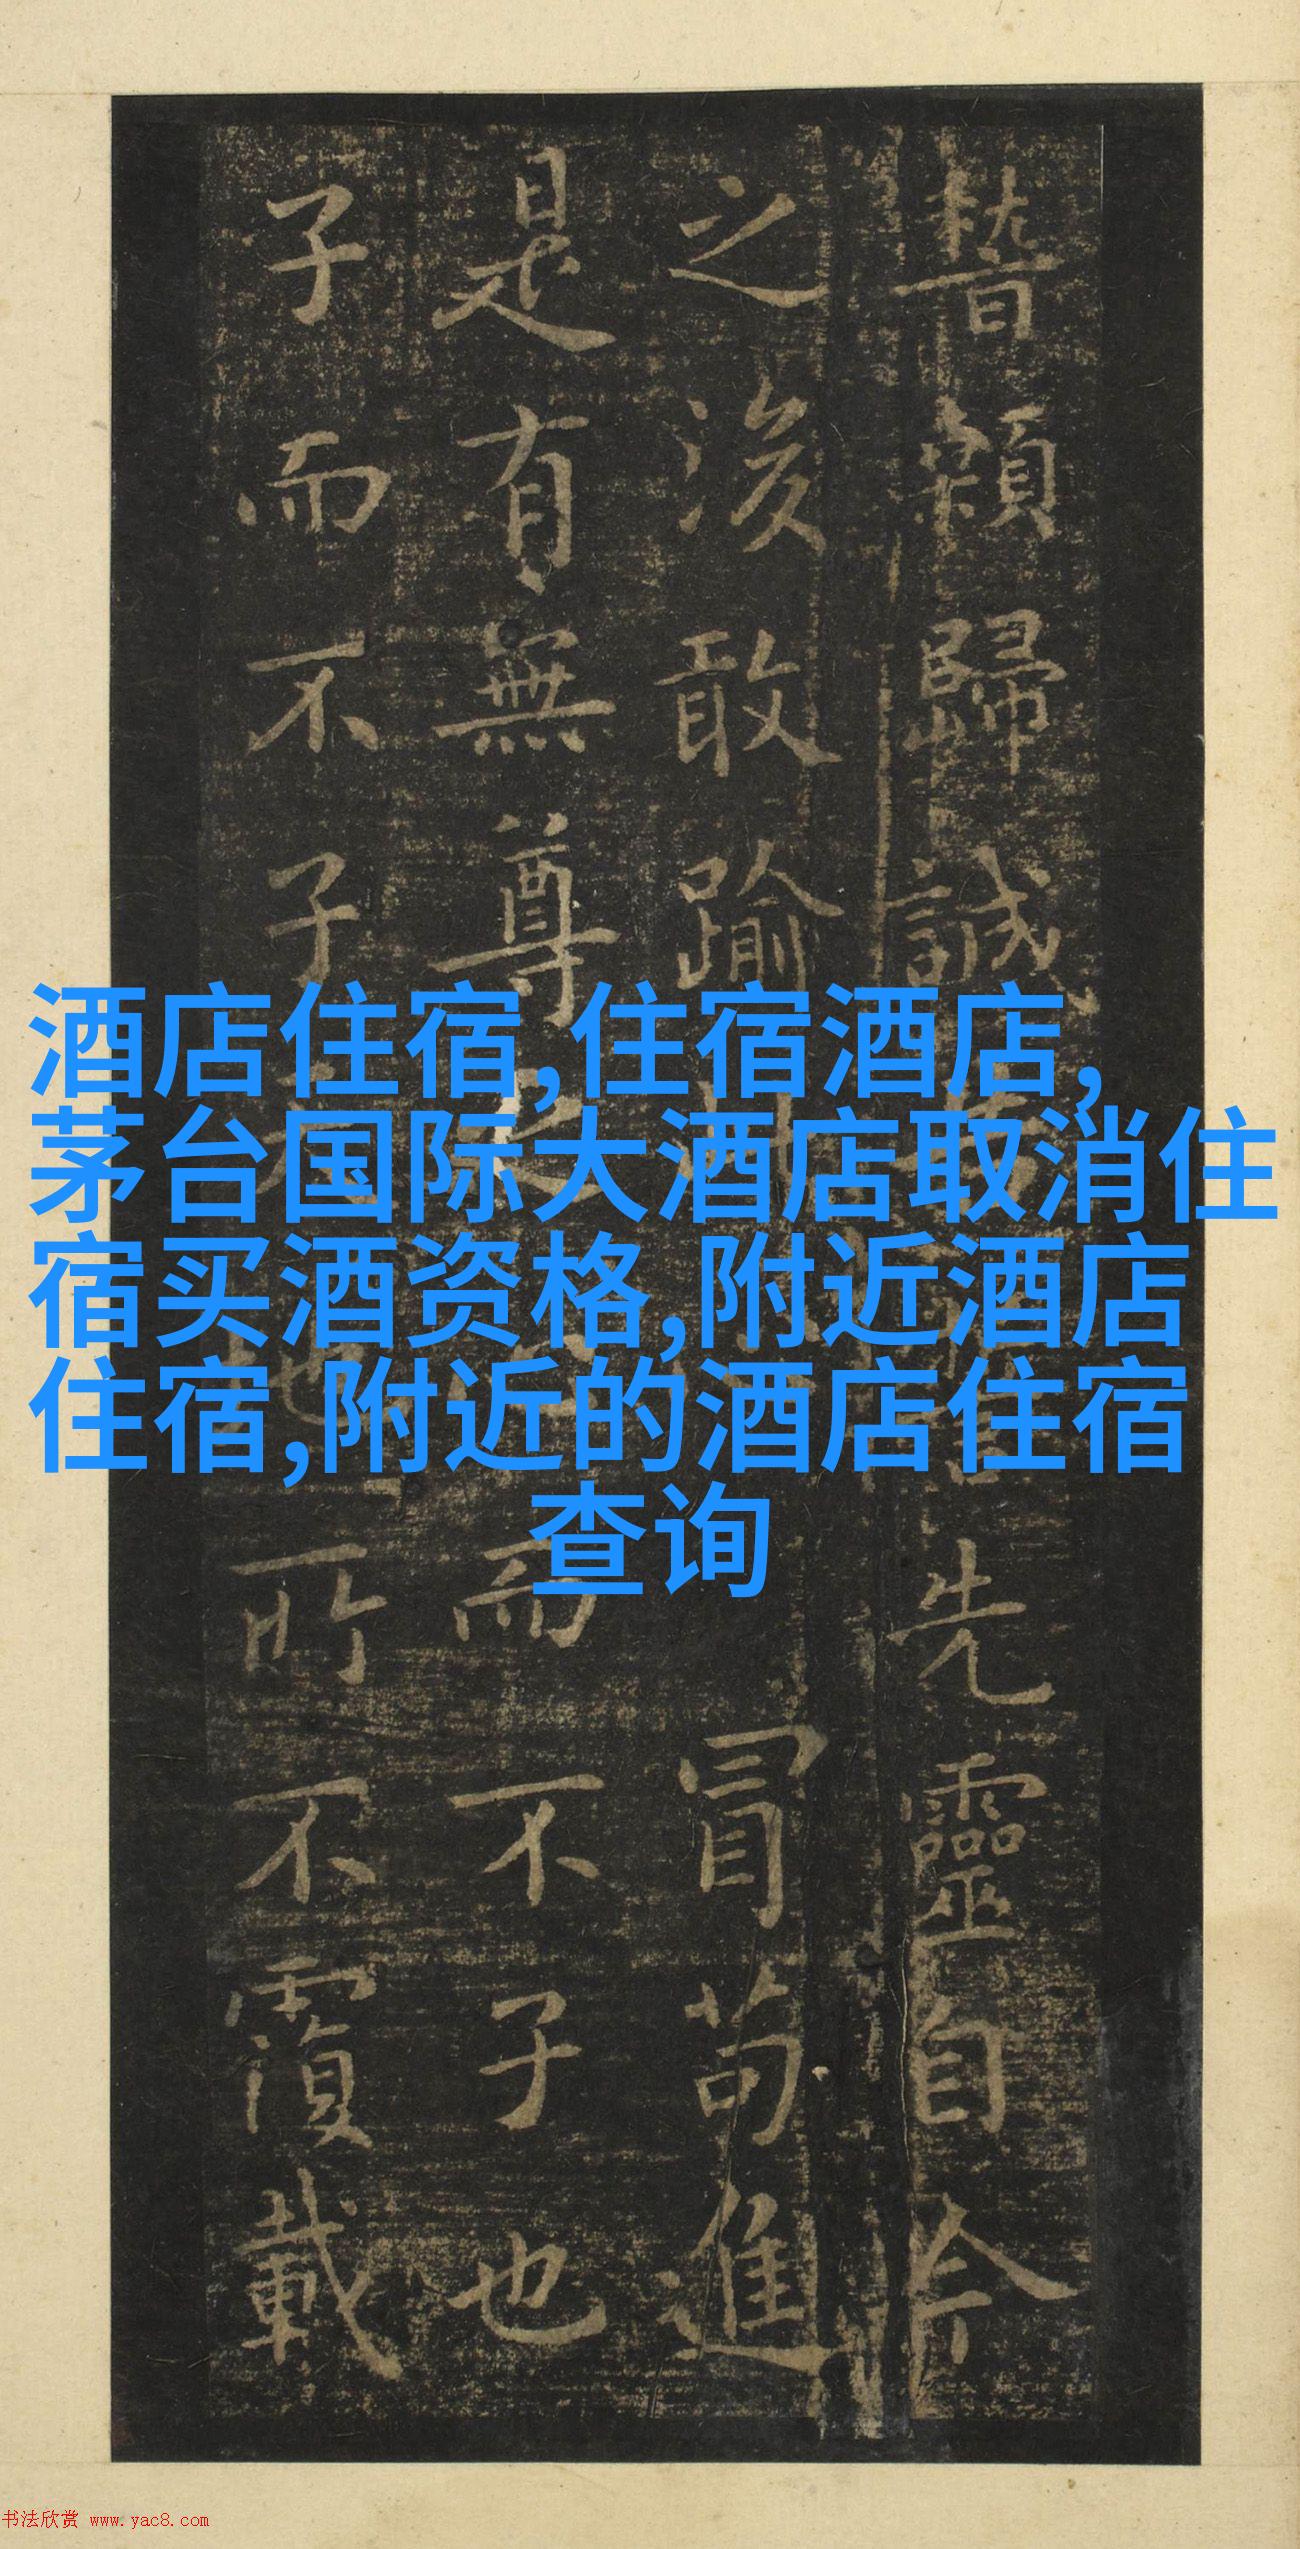 顙歸誠先靈自今
之後敢踰冒苟進
是有無尊之而不子也
子而不子所不覆載
酒店住宿,住宿酒店,
茅台国际大酒店取消住
宿买酒资格,附近酒店
住宿,附近的酒店住宿
查询
书法欣赏 www.yac8.com